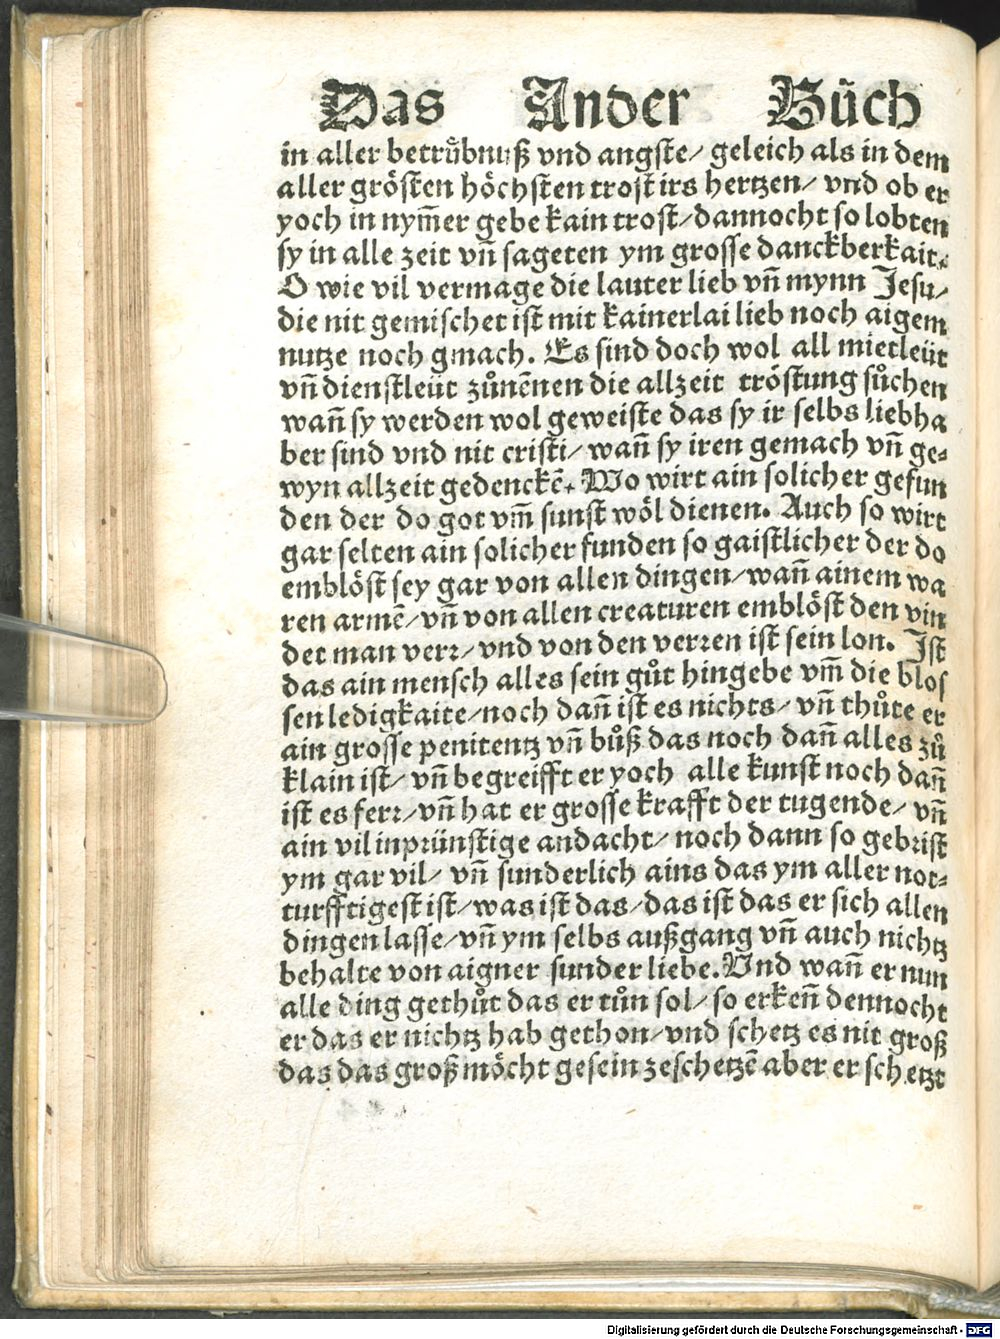 Das Ander Bůch
in aller betrůbnuß vnd angste/ geleich als in dem
aller grösten höchsten trost irs hertzen/ vnd ob er
yoch in nym̄er gebe kain trost/ dannocht so lobten
sy in alle zeit vn̄ sageten ym grosse danckberkait.
O wie vil vermage die lauter lieb vn̄ mynn Jesu/
die nit gemischet ist mit kainerlai lieb noch aigem
nutze noch gmach. Es sind doch wol all mietleüt
vn̄ dienstleüt zůnēnen die allzeit tröstung sůchen
wan̄ sy werden wol geweiste das sy ir selbs liebha
ber sind vnd nit cristi/ wan̄ sy iren gemach vn̄ ge⸗
wyn allzeit gedenckē. Wo wirt ain solicher gefun
den der do got vm̄ sunst wöl dienen. Auch so wirt
gar selten ain solicher funden so gaistlicher der do
emblöst sey gar von allen dingen/ wan̄ ainem wa
ren armē/ vn̄ von allen creaturen emblöst den vin
det man verr/ vnd von den verren ist sein lon. Ist
das ain mensch alles sein gůt hingebe vm̄ die blos
sen ledigkaite/ noch dan̄ ist es nichts/ vn̄ thůte er
ain grosse penitentz vn̄ bůß das noch dan̄ alles zů
klain ist/ vn̄ begreifft er yoch alle kunst noch dan̄
ist es ferr/ vn̄ hat er grosse krafft der tugende/ vn̄
ain vil inprünstige andacht/ noch dann so gebrist
ym gar vil/ vn̄ sunderlich ains das ym aller not⸗
turfftigest ist/ was ist das/ das ist das er sich allen
dingen lasse/ vn̄ ym selbs außgang vn̄ auch nichtz
behalte von aigner sunder liebe. Vnd wan̄ er nun
alle ding gethůt das er tůn sol/ so erken̄ dennocht
er das er nichtz hab gethon/ vnd schetz es nit groß
das das groß möcht gesein zeschetzē aber er schetzt
Digitalisierung gefördert durch die Deutsche Forschungsgemeinschaft - DFG